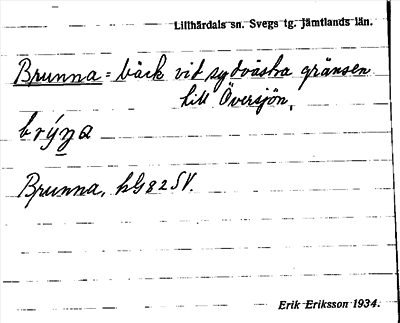 Lillhärdals sn. Svegs tg. Jämtlands län.
Brunna = bäck vid sydvästra gränsen
till Översjön,
Brunna, hG82SV.
Erik Eriksson 1934.